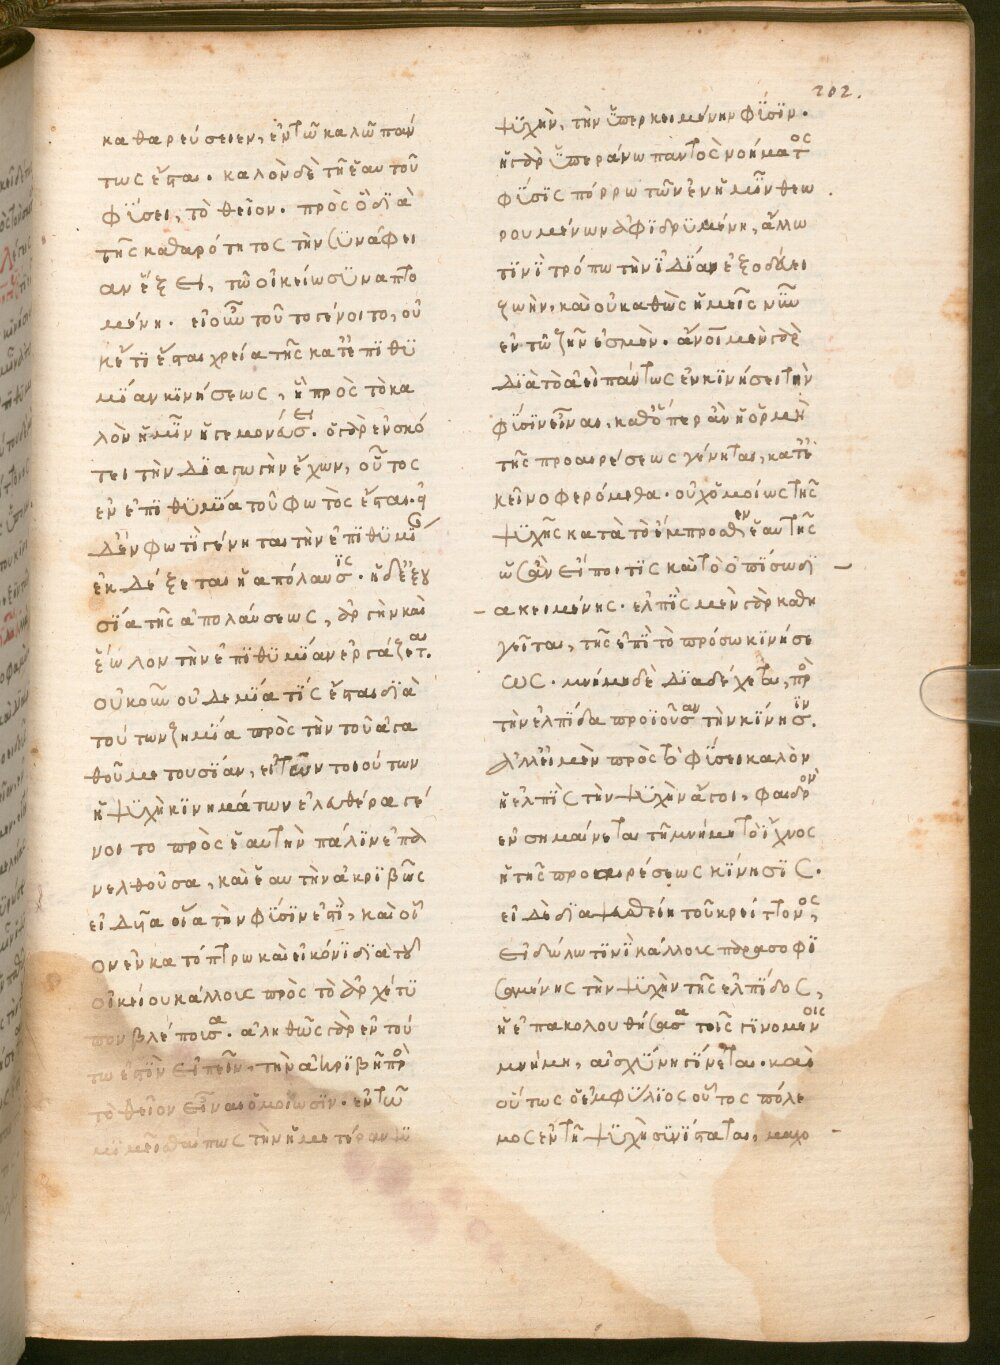 202.
καθαρεύσειεν, ἐν τῶ καλῶ πάν
τως ἔσται. καλὸν δὲ τῆ ἑαυτοῦ
φύσει, τὸ θεῖον. πρὸς ὃ διὰ
τῆς καθαρότητος τὴν συνάφει
αν ἕξει, τῶ οἰκείω συναπτο
μένη. εἰ οὖν τοῦτο γένοιτο, οὐ
κέτι ἔσται χρεία τῆς κατ' ἐπιθυ
μίαν κινήσεως, ἢ πρὸς τὸ κα
λὸν ἡμῖν ἡγεμονεύσει. ὁ γὰρ ἐν σκό
τει τὴν διαγωγὴν ἔχων, οὗτος
ἐν ἐπιθυμία τοῦ φωτὸς ἔσται. εἰ
δ' ἐν φωτὶ γένηται τὴν ἐπιθυμίαν
ἐκδέξεται ἡ ἀπόλαυσις. ἡ δ' ἐξου
σία τῆς ἀπολαύσεως, ἀργὴν καὶ
ἕωλον τὴν ἐπιθυμίαν ἐργάζεται.
οὐκοῦν οὐδεμία τίς ἔσται διὰ
τούτων ζημία πρὸς τὴν τοῦ ἀγα
θοῦ μετουσίαν, εἰ τῶν τοιούτων
ἡ ψυχὴ κινημάτων ἐλευθέρα γέ
νοιτο πρὸς ἑαυτὴν πάλιν ἐπα
νελθοῦσα, καὶ ἑαυτὴν ἀκριβῶς
εἰδῆσα οἵα τὴν φύσιν ἐστὶ, καὶ οἷ
ον ἐν κατόπτρω καὶ εἰκόνι διὰ τοῦ
οἰκείου κάλλους πρὸς τὸ ἀρχέτυ
πον βλέπουσα. ἀληθῶς γὰρ ἐν τού
τω ἐστὶν εἰπεῖν, τὴν ἀκριβῆ πρὸς
τὸ θεῖον εἶναι ὁμοίωσιν. ἐν τῶ
μιμεῖσθαί πως τὴν ἡμετέραν ψυ
ψυχὴν, τὴν ὑπερκειμένην φύσιν.
ἡ γὰρ ὑπεράνω παντὸς νοήματος
φύσις πόρρω τῶν ἐν ἡμῖν θεω
ρουμένων ἀφιδρυμένη, ἄλλω
τινὶ τρόπω τὴν ἰδίαν ἐξοδεύει
ζωὴν, καὶ οὐ καθὼς ἡμεῖς νῦν
ἐν τῶ ζῆν ἐσμὲν. ἄνοι μὲν γὰρ
διὰ τὸ ἀεὶ πάντως ἐν κινήσει τὴν
φύσιν εἶναι, καθ' ὅπερ ἂν ἡ ὁρμὴ
τῆς προαιρέσεως γένηται, κατ' ἐ
κεῖνο φερόμεθα. οὐχ ὁμοίως τῆς
ψυχῆς κατὰ τὸ ἔμπροσθεν ἑαυτῆς
ὡς ἂν εἴποι τὶς καὶ τὸ ὀπίσω δι
ακειμένης. ἐλπὶς μὲν γὰρ καθη
γεῖται, τῆς ἐπὶ τὸ πρόσω κινήσε
ως. μνήμη δὲ διαδέχεται, πρὸς
τὴν ἐλπίδα προϊοῦσαν τὴν κίνησιν.
ἀλλ' εἰ μὲν πρὸς τὸ φύσει καλὸν
ἡ ἐλπὶς τὴν ψυχὴν ἄγοι, φαιδρὸν
ἐνσημαίνεται τῆ μνήμη τὸ ἴχνος
ἡ τῆς προαιρέσεως κίνησις.
εἰ δὲ διαψευσθείη τοῦ κρείττονος,
εἰδώλω τινὶ κάλλους παρασοφι
σαμένης τὴν ψυχὴν τῆς ἐλπίδος,
ἡ ἐπακολουθήσασα τοῖς γινομένοις
μνήμη, αἰσχύνη γίνεται. καὶ
οὕτως ὁ ἐμφύλιος οὗτος πόλε
μος ἐν τῆ ψυχῆ συνίσταται, μαχο